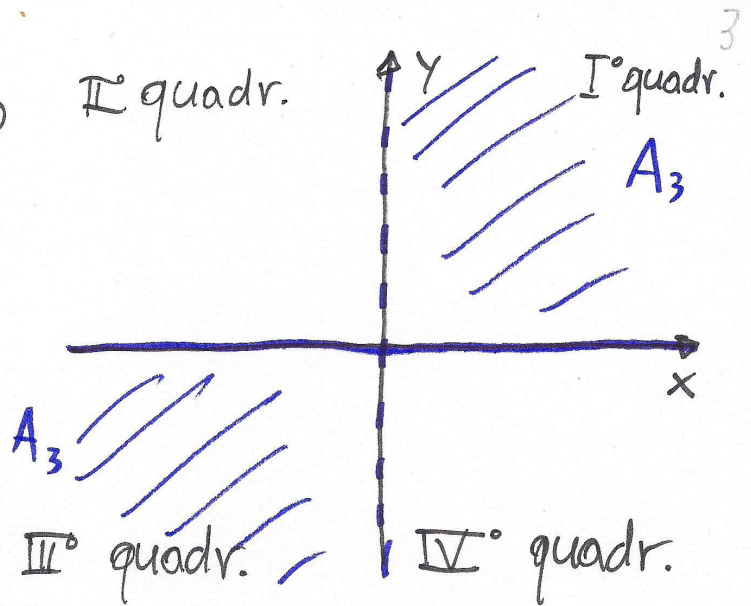 3
II° quadr.
Y
I° quadr.
A₃
X
A₃
III° quadr.
IV° quadr.